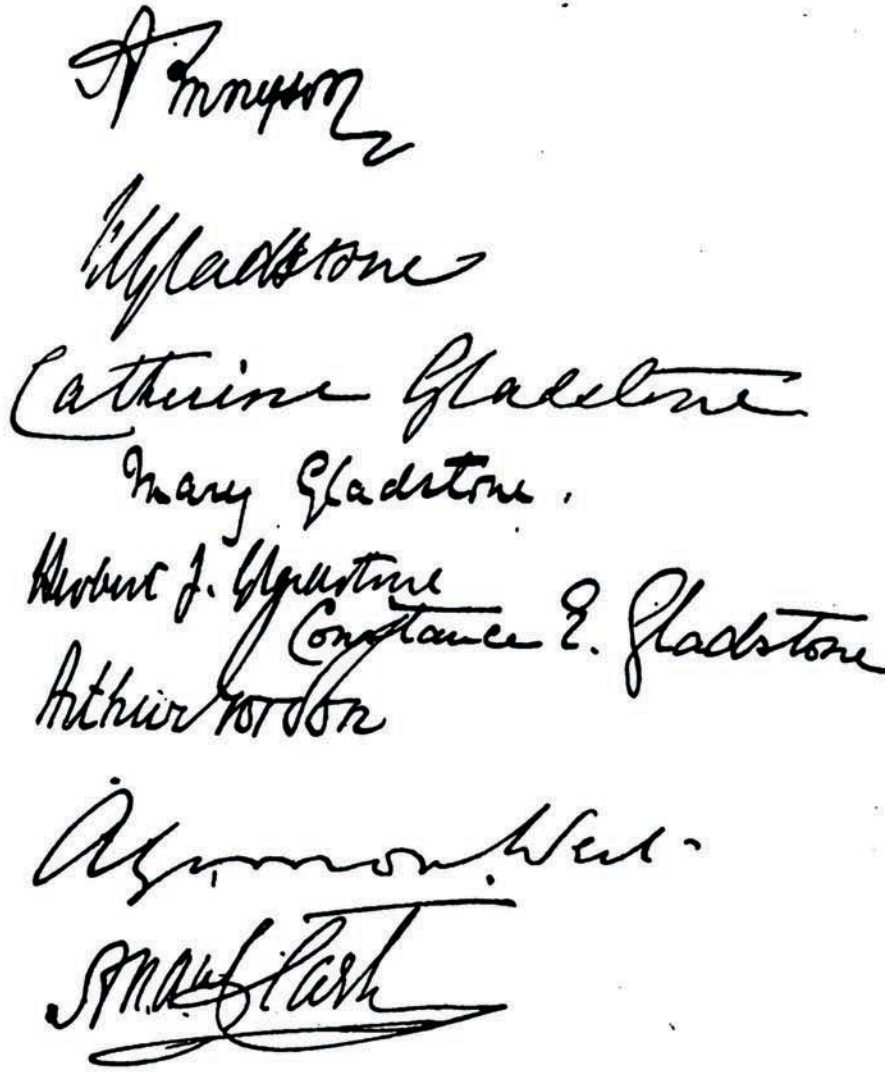 A Tennyson
WGladstone
Catherine Gladstone
Mary Gladstone.
Herbert J. Gladstone
Constance E. Gladstone
Arthur Gordon
Algernon West